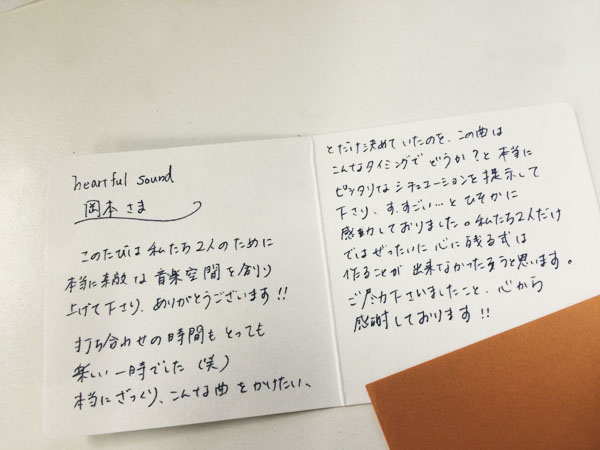 heartful sound
岡本さま
このたびは私たち2人のために
本当に素敵な音楽空間を創り
上げて下さり、ありがとうございます!!
打ち合わせの時間もとっても
楽しい一時でした(笑)
本当にざっくり、こんな曲をかけたい、
とだけ決めていたのを、この曲は
こんなタイミングでどうか?と本当に
ピッタリなシチュエーションを提示して
下さり、す、すごい…とひそかに
感動しておりました。私たち2人だけ
ではぜったいに心に残る式は
作ることが出来なかったろうと思います。
ご尽力下さいましたこと、心から
感謝しております!!